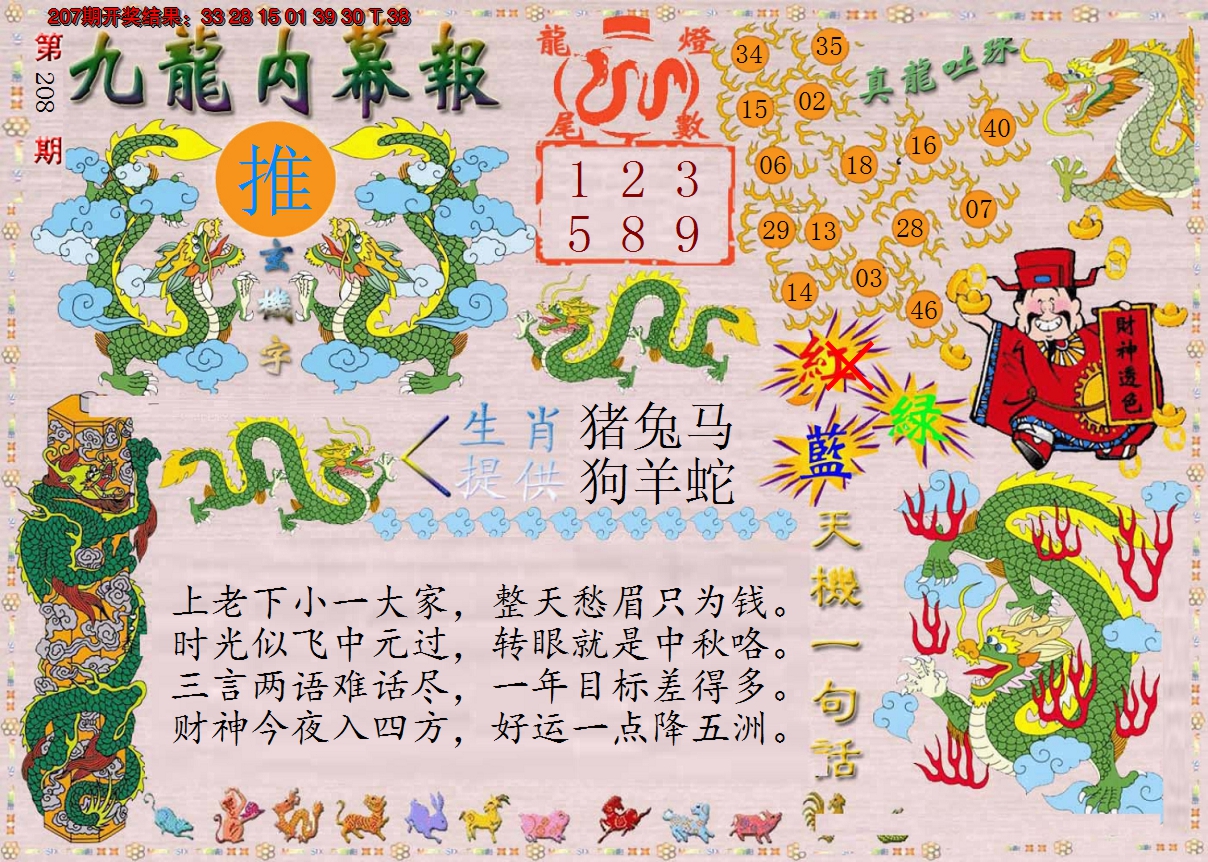 207期开奖结果：33 28 15 01 39 30 T 38
第208期
九龍内幕報
推
玄機字
龍燈尾數
1 2 3
5 8 9
真龍吐珠
34 35
15 02
06 18 16 40
29 13 28 07
14 03 46
財神透色
紅
綠
藍
生肖 猪兔马
提供 狗羊蛇
天機一句話
上老下小一大家，整天愁眉只为钱。
时光似飞中元过，转眼就是中秋咯。
三言两语难话尽，一年目标差得多。
财神今夜入四方，好运一点降五洲。